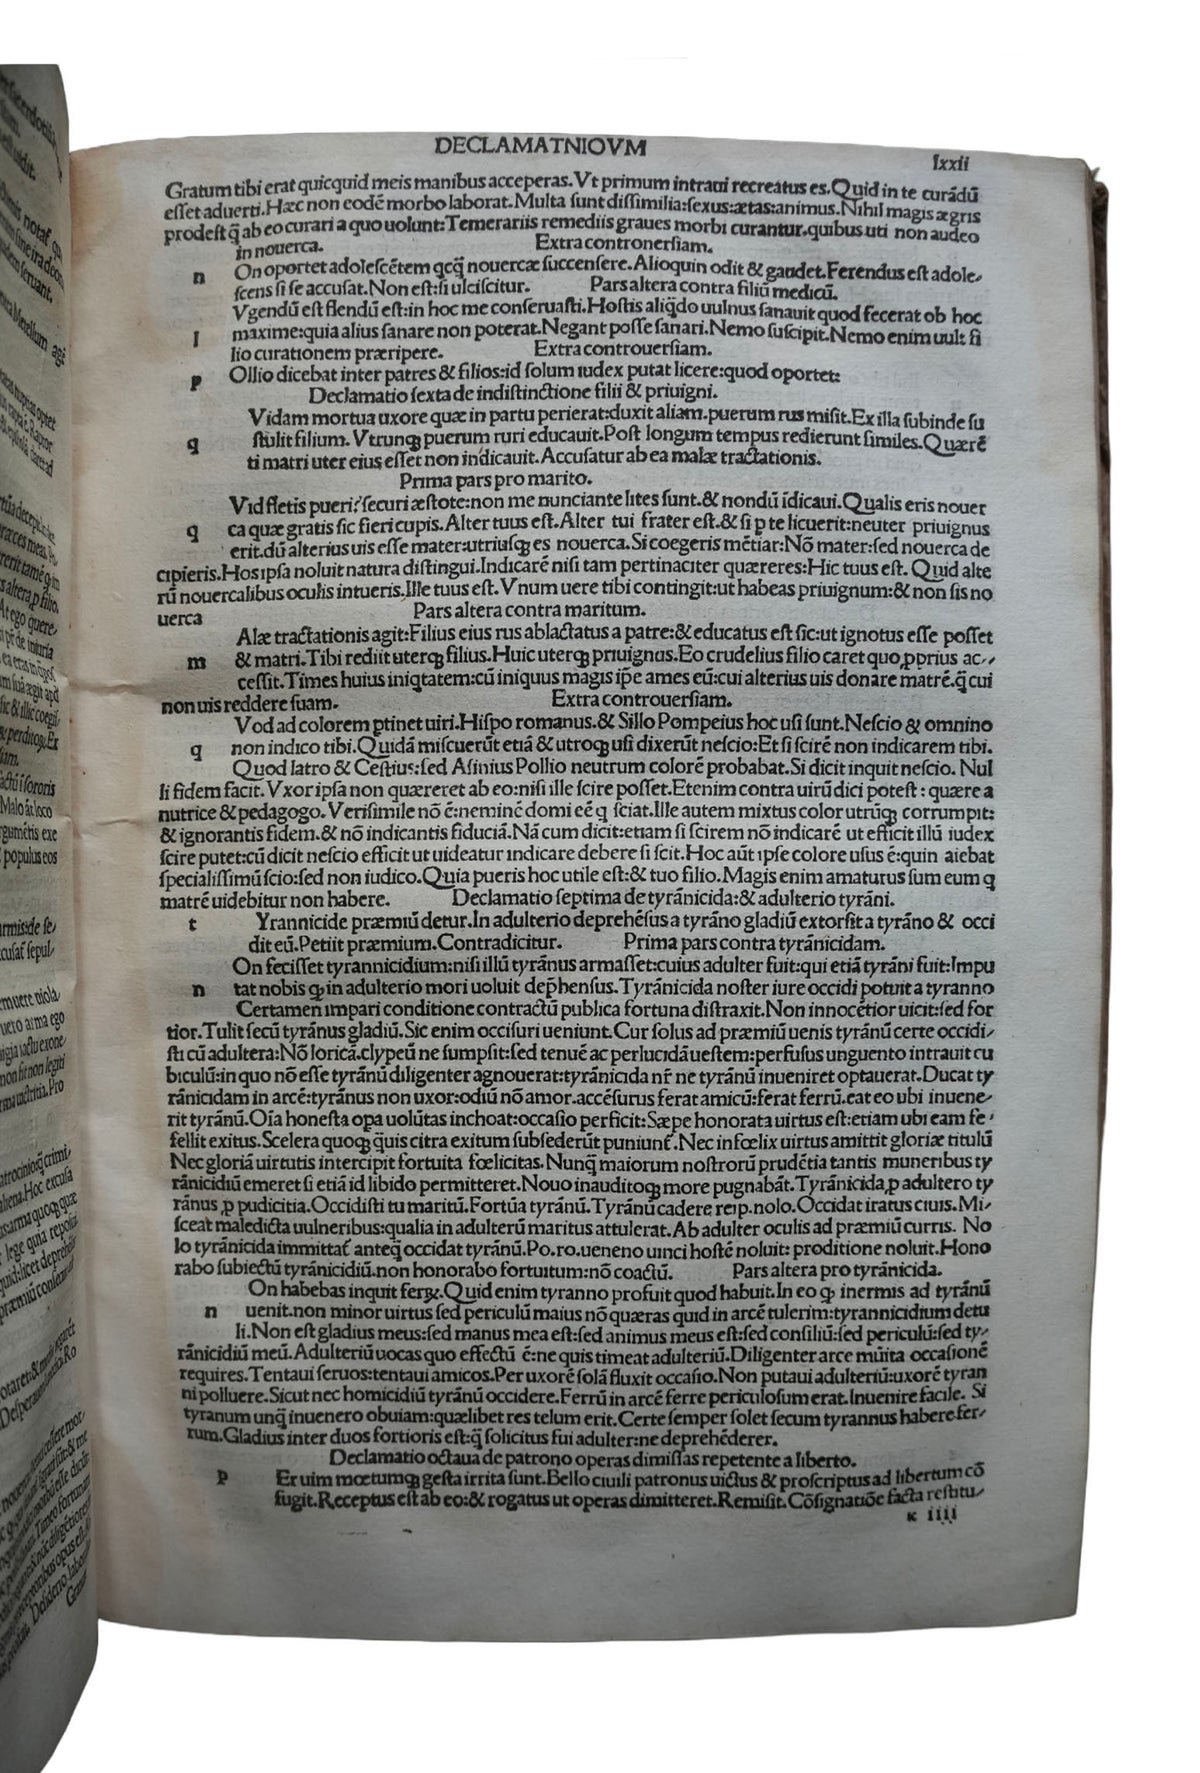 DECLAMATNIOVM
lxxii
Gratum tibi erat quicquid meis manibus acceperas.Vt primum intraui recreatus es.Quid in te curādū
eſſet aduerti.Hæc non eodē morbo laborat.Multa ſunt diſſimilia:ſexus:ætas:animus.Nihil magis ægris
prodeſt q̄ ab eo curari a quo uolunt:Temerariis remediis graues morbi curantur.quibus uti non audeo
in nouerca. Extra contronerſiam.
n On oportet adoleſcētem qcq̄ nouercæ ſuccenſere.Alioquin odit & gaudet.Ferendus eſt adole⸗
ſcens ſi ſe accuſat.Non eſt:ſi ulciſcitur. Pars altera contra filiū medicū.
Vgendū eſt flendū eſt:in hoc me conſeruaſti.Hoſtis aliq̄do uulnus ſanauit quod fecerat ob hoc
l maxime:quia alius ſanare non poterat.Negant poſſe ſanari.Nemo ſuſcipit.Nemo enim uult ſi
lio curationem præripere. Extra controuerſiam.
p Ollio dicebat inter patres & filios:id ſolum iudex putat licere:quod oportet:
Declamatio ſexta de indiſtinctione filii & priuigni.
Vidam mortua uxore quæ in partu perierat:duxit aliam.puerum rus miſit.Ex illa ſubinde ſu
q ſtulit filium.Vtrunqꝫ puerum ruri educauit.Poſt longum tempus redierunt ſimiles.Quærē
ti matri uter eius eſſet non indicauit.Accuſatur ab ea malæ tractationis.
Prima pars pro marito.
Vid fletis pueri?ſecuri æſtote:non me nunciante lites ſunt.& nondū īdicaui.Qualis eris nouer
q ca quæ gratis ſic fieri cupis.Alter tuus eſt.Alter tui frater eſt.& ſi p te licuerit:neuter priuignus
erit.dū alterius uis eſſe mater:utriuſqꝫ es nouerca.Si coegeris mētiar:Nō mater:ſed nouerca de
cipieris.Hos ipſa noluit natura diſtingui.Indicarē niſi tam pertinaciter quæreres:Hic tuus eſt.Quid alte
rū nouercalibus oculis intueris.Ille tuus eſt.Vnum uere tibi contingit:ut habeas priuignum:& non ſis no
uerca Pars altera contra maritum.
Alæ tractationis agit:Filius eius rus ablactatus a patre:& educatus eſt ſic:ut ignotus eſſe poſſet
m & matri.Tibi rediit uterqꝫ filius.Huic uterqꝫ priuignus.Eo crudelius filio caret quo ꝓprius ac⸗
ceſſit.Times huius iniqtatem:cū iniquus magis ipe ames eū:cui alterius uis donare matrē.q̄ cui
non uis reddere ſuam. Extra controuerſiam.
Vod ad colorem ptinet uiri.Hiſpo romanus.& Sillo Pompeius hoc uſi ſunt.Neſcio & omnino
q non indico tibi.Quidā miſcuerūt etiā & utroqꝫ uſi dixerūt neſcio:Et ſi ſcirē non indicarem tibi.
Quod latro & Ceſtius:ſed Aſinius Pollio neutrum colorē probabat.Si dicit inquit neſcio. Nul
li fidem facit.Vxor ipſa non quæreret ab eo:niſi ille ſcire poſſet.Etenim contra uirū dici poteſt : quære a
nutrice & pedagogo.Veriſimile nō ē:neminē domi eē q ſciat.Ille autem mixtus color utrūqꝫ corrumpit:
& ignorantis fidem.& nō indicantis fiduciā.Nā cum dicit:etiam ſi ſcirem nō indicarē ut efficit illū iudex
ſcire putet:cū dicit neſcio efficit ut uideatur indicare debere ſi ſcit.Hoc aūt ipſe colore uſus ē:quin aiebat
ſpecialiſſimū ſcio:ſed non iudico.Quia pueris hoc utile eſt:& tuo filio.Magis enim amaturus ſum eum q
matrē uidebitur non habere. Declamatio ſeptima de tyrānicida:& adulterio tyrāni.
t Yrannicide præmiū detur.In adulterio deprehēſus a tyrāno gladiū extorſit a tyrāno & occi
dit eū.Petiit præmium.Contradicitur. Prima pars contra tyrānicidam.
On feciſſet tyrannicidium:niſi illū tyrānus armaſſet:cuius adulter fuit:qui etiā tyrāni fuit:Impu
n tat nobis ꝙ in adulterio mori uoluit dep̄henſus.Tyrānicida noſter iure occidi potuit a tyranno
Certamen impari conditione contractū publica fortuna diſtraxit.Non innocētior uicit:ſed for
tior.Tulit ſecū tyrānus gladiū.Sic enim occiſuri ueniunt.Cur ſolus ad præmiū uenis tyrānū certe occidi⸗
ſti cū adultera:Nō loricā.clypeū ne ſumpſit:ſed tenuē ac perlucidā ueſtem:perfuſus unguento intrauit cu
biculū:in quo nō eſſe tyrānū diligenter agnouerat:tyrānicida nr̄ ne tyrānū inueniret optauerat.Ducat ty
rānicidam in arcē:tyrānus non uxor:odiū nō amor.accēſurus ferat amicū:ferat ferrū.eat eo ubi inuene⸗
rit tyrānū.Oīa honeſta opa uolūtas inchoat:occaſio perficit:Sæpe honorata uirtus eſt:etiam ubi eam fe⸗
fellit exitus.Scelera quoqꝫ q̄uis citra exitum ſubſederūt puniunt̄.Nec infœlix uirtus amittit gloriæ titulū
Nec gloriā uirtutis intercipit fortuita fœlicitas.Nunq̄ maiorum noſtrorū prudētia tantis muneribus ty
rānicidiū emeret ſi etiā id libido permitteret.Nouo inauditoqꝫ more pugnabāt.Tyrānicida ꝓ adultero ty
rānus ꝓ pudicitia.Occidiſti tu maritū.Fortūa tyrānū.Tyrānū cadere reip.nolo.Occidat iratus ciuis.Mi⸗
ſceat maledicta uulneribus:qualia in adulterū maritus attulerat.Ab adulter oculis ad præmiū curris. No
lo tyrānicida immittat̄ anteq̄ occidat tyrānū.Po.ro.ueneno uinci hoſtē noluit: proditione noluit.Hono
rabo ſubiectū tyrānicidiū.non honorabo fortuitum:nō coactū. Pars altera pro tyrānicida.
On habebas inquit ferꝝ.Quid enim tyranno profuit quod habuit.In eo ꝙ inermis ad tyrānū
n uenit.non minor uirtus ſed periculū maius nō quæras quid in arcē tulerim:tyrannicidium detu
li.Non eſt gladius meus:ſed manus mea eſt:ſed animus meus eſt:ſed conſiliū:ſed periculū:ſed ty⸗
rānicidiū meū.Adulteriū uocas quo effectū ē:ne quis timeat adulteriū.Diligenter arce mūita occaſionē
requires.Tentaui ſeruos:tentaui amicos.Per uxorē ſolā fluxit occaſio.Non putaui adulteriū:uxorē tyran
ni polluere.Sicut nec homicidiū tyrānū occidere.Ferrū in arcē ferre periculoſum erat.Inuenire facile. Si
tyranum unq̄ inuenero obuiam:quælibet res telum erit.Certe ſemper ſolet ſecum tyrannus habere fer⸗
rum.Gladius inter duos fortioris eſt:q̄ ſolicitus fui adulter:ne deprehēderer.
Declamatio octaua de patrono operas dimiſſas repetente a liberto.
p Er uim mœtumqꝫ geſta irrita ſunt.Bello ciuili patronus uictus & proſcriptus ad libertum cō
fugit.Receptus eſt ab eo:& rogatus ut operas dimitteret.Remiſit.Cōſignatiōe facta reſtitu⸗
k iiii